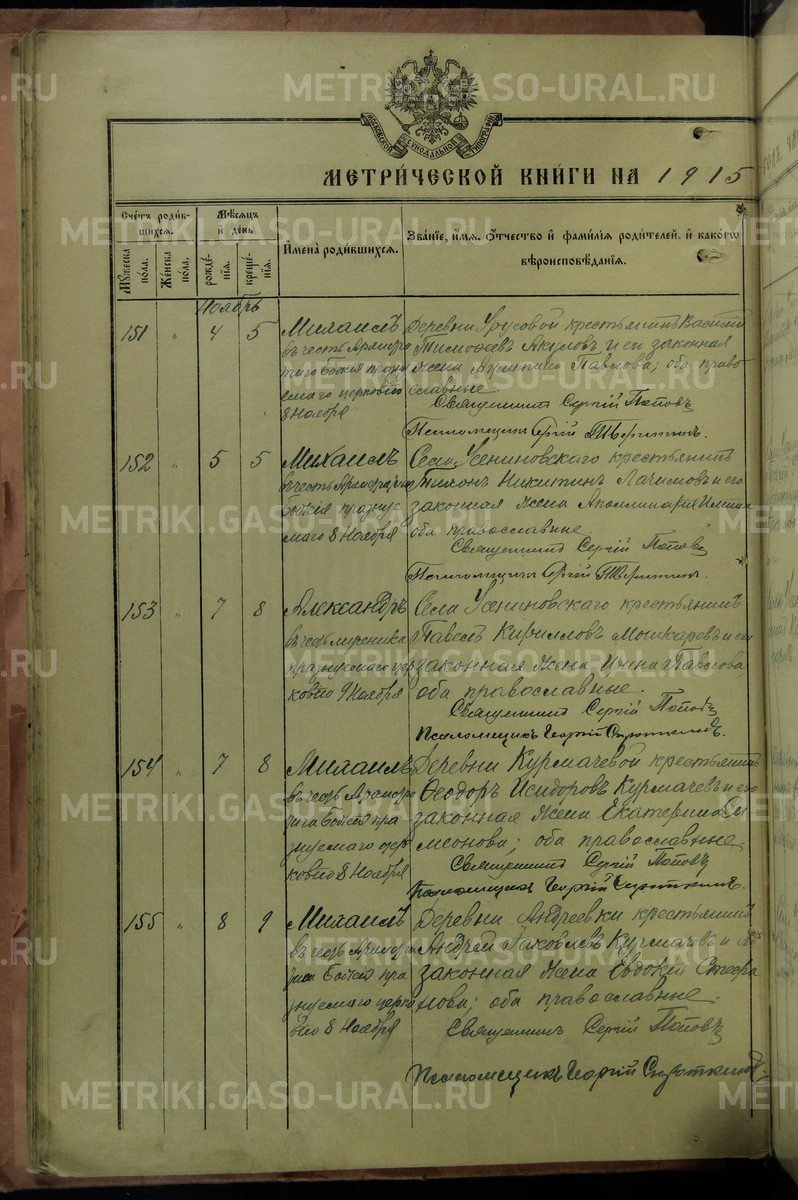 METRIKI.GASO-URAL.RU
МОСКОВСКОЙ СѴНОДАЛЬНОЙ ТИПОГРАФІИ
МЕТРИ́ЧЕСКОЙ КНИ́ГИ НА 1915
Счетъ роди́вшихсѧ.
Мꙋжеска пола.
Же́нска по́ла.
Мѣсяцъ и день
рожде́нїѧ.
креще́нїѧ.
И҆мена̀ роди́вшихсѧ.
Зва́нїе, и҆́мѧ, ѻ҆́тчество и҆ фами́лїѧ роди́телей, и҆ како́гѡ вѣроисповѣ́данїѧ.
Ноябрь
151 " 4 5
Михаилъ
въ честь Архистра
тига Божія праздн
емаго церковію
8 Ноября
Деревни Урусовой крестьянинъ Василій
Тимофеевъ Акуловъ и его законная
жена Павлова; оба право
славные.
Священникъ Сергій Поповъ
Псаломщикъ
152 " 5 5
Михаилъ
въ честь
Божія праздну
емаго 8 Ноября
Села Усениновскаго крестьянинъ
Никитинъ и его
законная жена Аполлинарія
оба православные
Священникъ Сергій Поповъ
Псаломщикъ
153 " 7 8
Александръ
въ честь мученика
празднуемаго цер
ковію 9 Ноября
Села Усениновскаго крестьянинъ
Павелъ Кирилловъ Мошкаревъ и его
законная жена Павлова
оба православные.
Священникъ Сергій Поповъ
Псаломщикъ Георгій Сироткинъ.
154 " 7 8
Михаилъ
въ честь Архистра
тига Божія пра
знуемаго цер
ковію 8 Ноября
Деревни Курмачевой крестьянинъ
Ѳеодоръ Исидоровъ Курмачевъ и его
законная жена Екатерина Си
меонова; оба православные
Священникъ Сергій Поповъ
Псаломщикъ Георгій Сироткинъ.
155 " 8 9
Михаилъ
въ честь Архистра
тига Божія пра
знуемаго церко
вію 8 Ноября
Деревни Андреевки крестьянинъ
Андрей Іаковлевъ Курмачевъ и его
законная жена Евдокія Стефа
нова; оба православные.
Священникъ Сергій Поповъ
Псаломщикъ Георгій Сироткинъ.